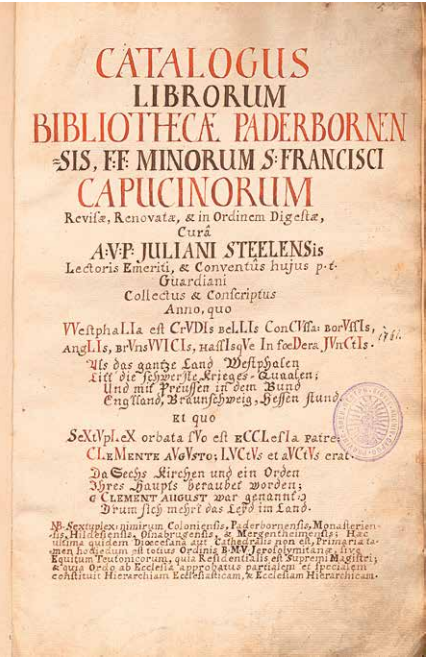 CATALOGUS
LIBRORUM
BIBLIOTHECÆ PADERBORNEN
SIS, F.F. MINORUM S: FRANCISCI
CAPUCINORUM
Revisæ, Renovatæ, & in Ordinem Digestæ,
Curâ
A.V.P. JULIANI STEELENSis
Lectoris Emeriti, & Conventûs hujus p.t.
Guardiani
Collectus & Conscriptus
Anno, quo
VVestphaLIa est CrVDIs beLLIs ConCVssa: borVssIs,
AngLIs, brVnsVVICIs, HassIsqVe In foeDera JVnCtIs.
1761.
Als das gantze Land Westphalen
Litt die schwerste Krieges-Quaalen;
Und mit Preussen in dem Bund
Englland, Braunschweig, Hessen stund.
Et quo
SeXtVpLeX orbata sVo est ECCLesIa patre
CLEMENTE AVGVSTO; LVCtVs et aVCtVs erat.
Da Sechs Kirchen und ein Orden
Ihres Haupts beraubet worden;
CLEMENT AUGUST war genannt
Drum sich mehrt das Leyd im Land.
NB. Sextuplex: nimirum Coloniensis, Paderbornensis, Monasterien-
sis, Hildesiensis, Osnabrugensis, & Mergentheimensis: Hæc
ultima quidem Dioecesana aut Cathedralis non est, Primaria ta-
men hodiedum est totius Ordinis B.M.V. Jerosolymitanæ, sive
Equitum Teutonicorum, quia Residentialis est Supremi Magistri;
& quia Ordo ab Ecclesia approbatus partialem et specialem
constituit Hierarchiam Ecclesiasticam, & Ecclesiam Hierarchicam.